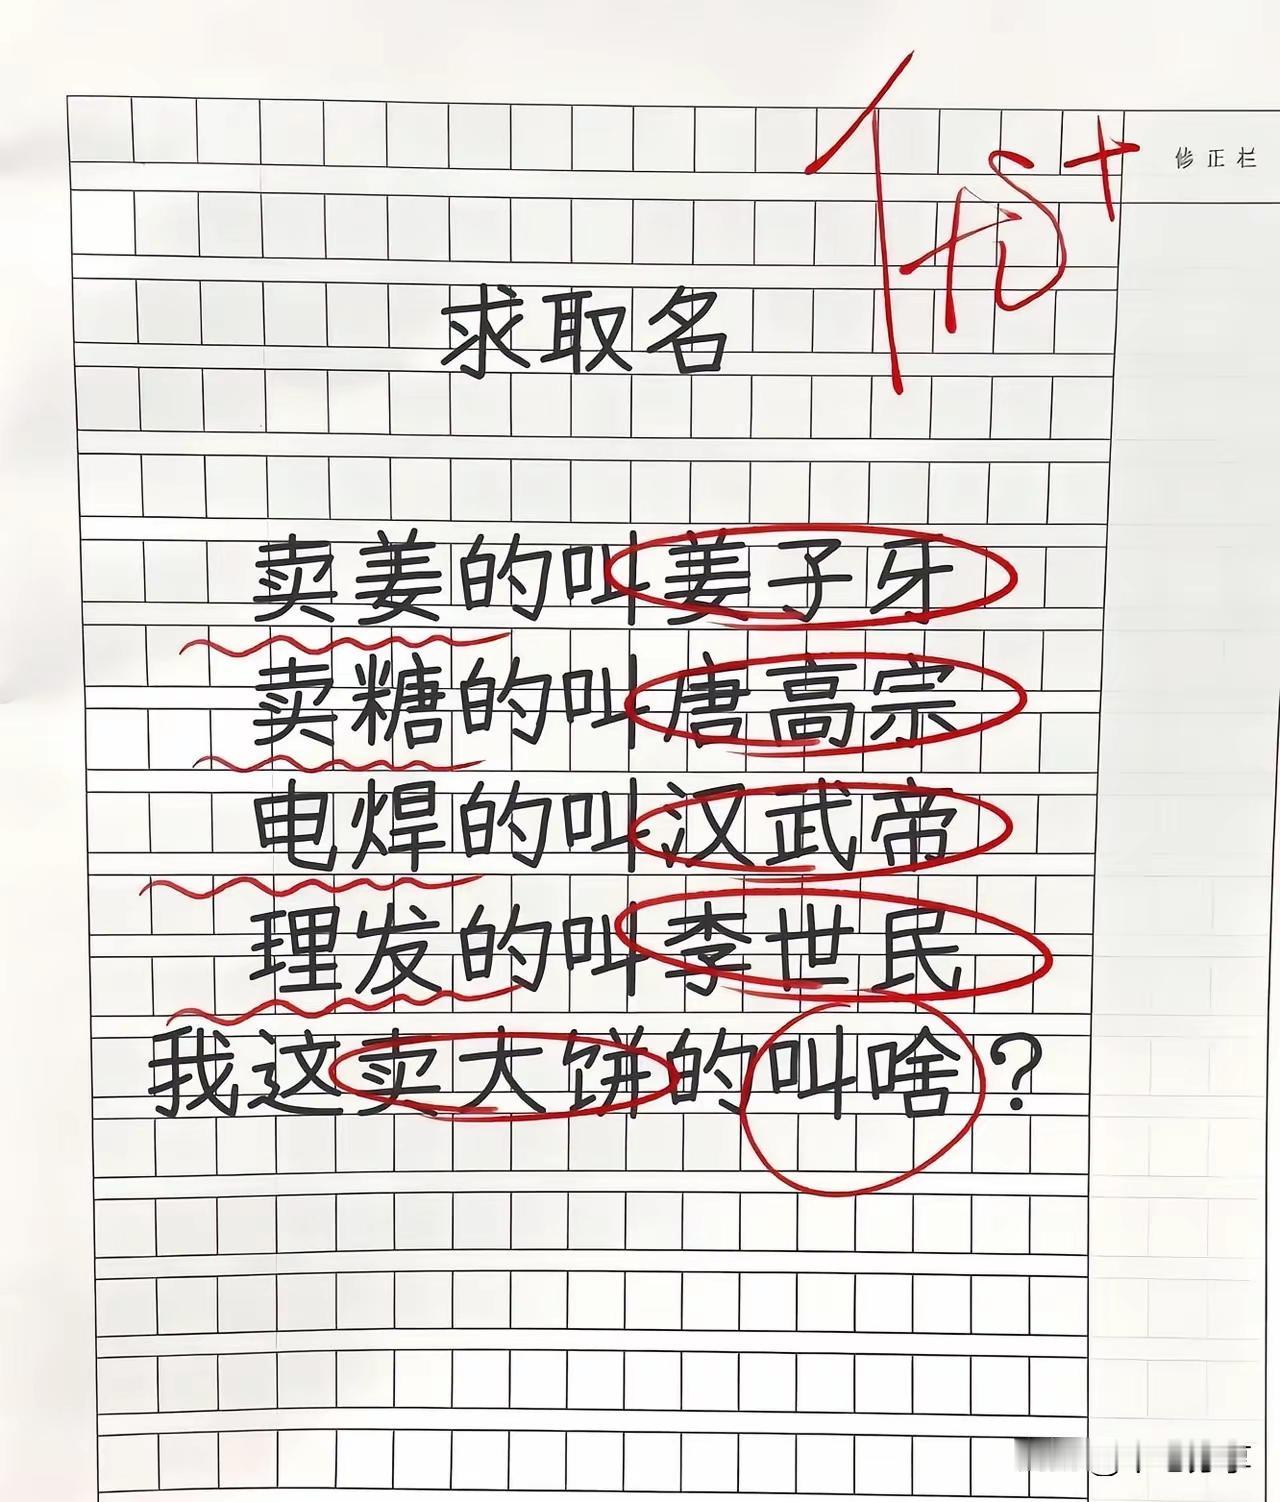 修正栏
求取名
卖姜的叫姜子牙
卖糖的叫唐高宗
电焊的叫汉武帝
理发的叫李世民
我这卖大饼的叫啥？